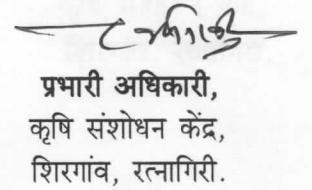 प्रभारी अधिकारी,
कृषि संशोधन केंद्र,
शिरगांव, रत्नागिरी.